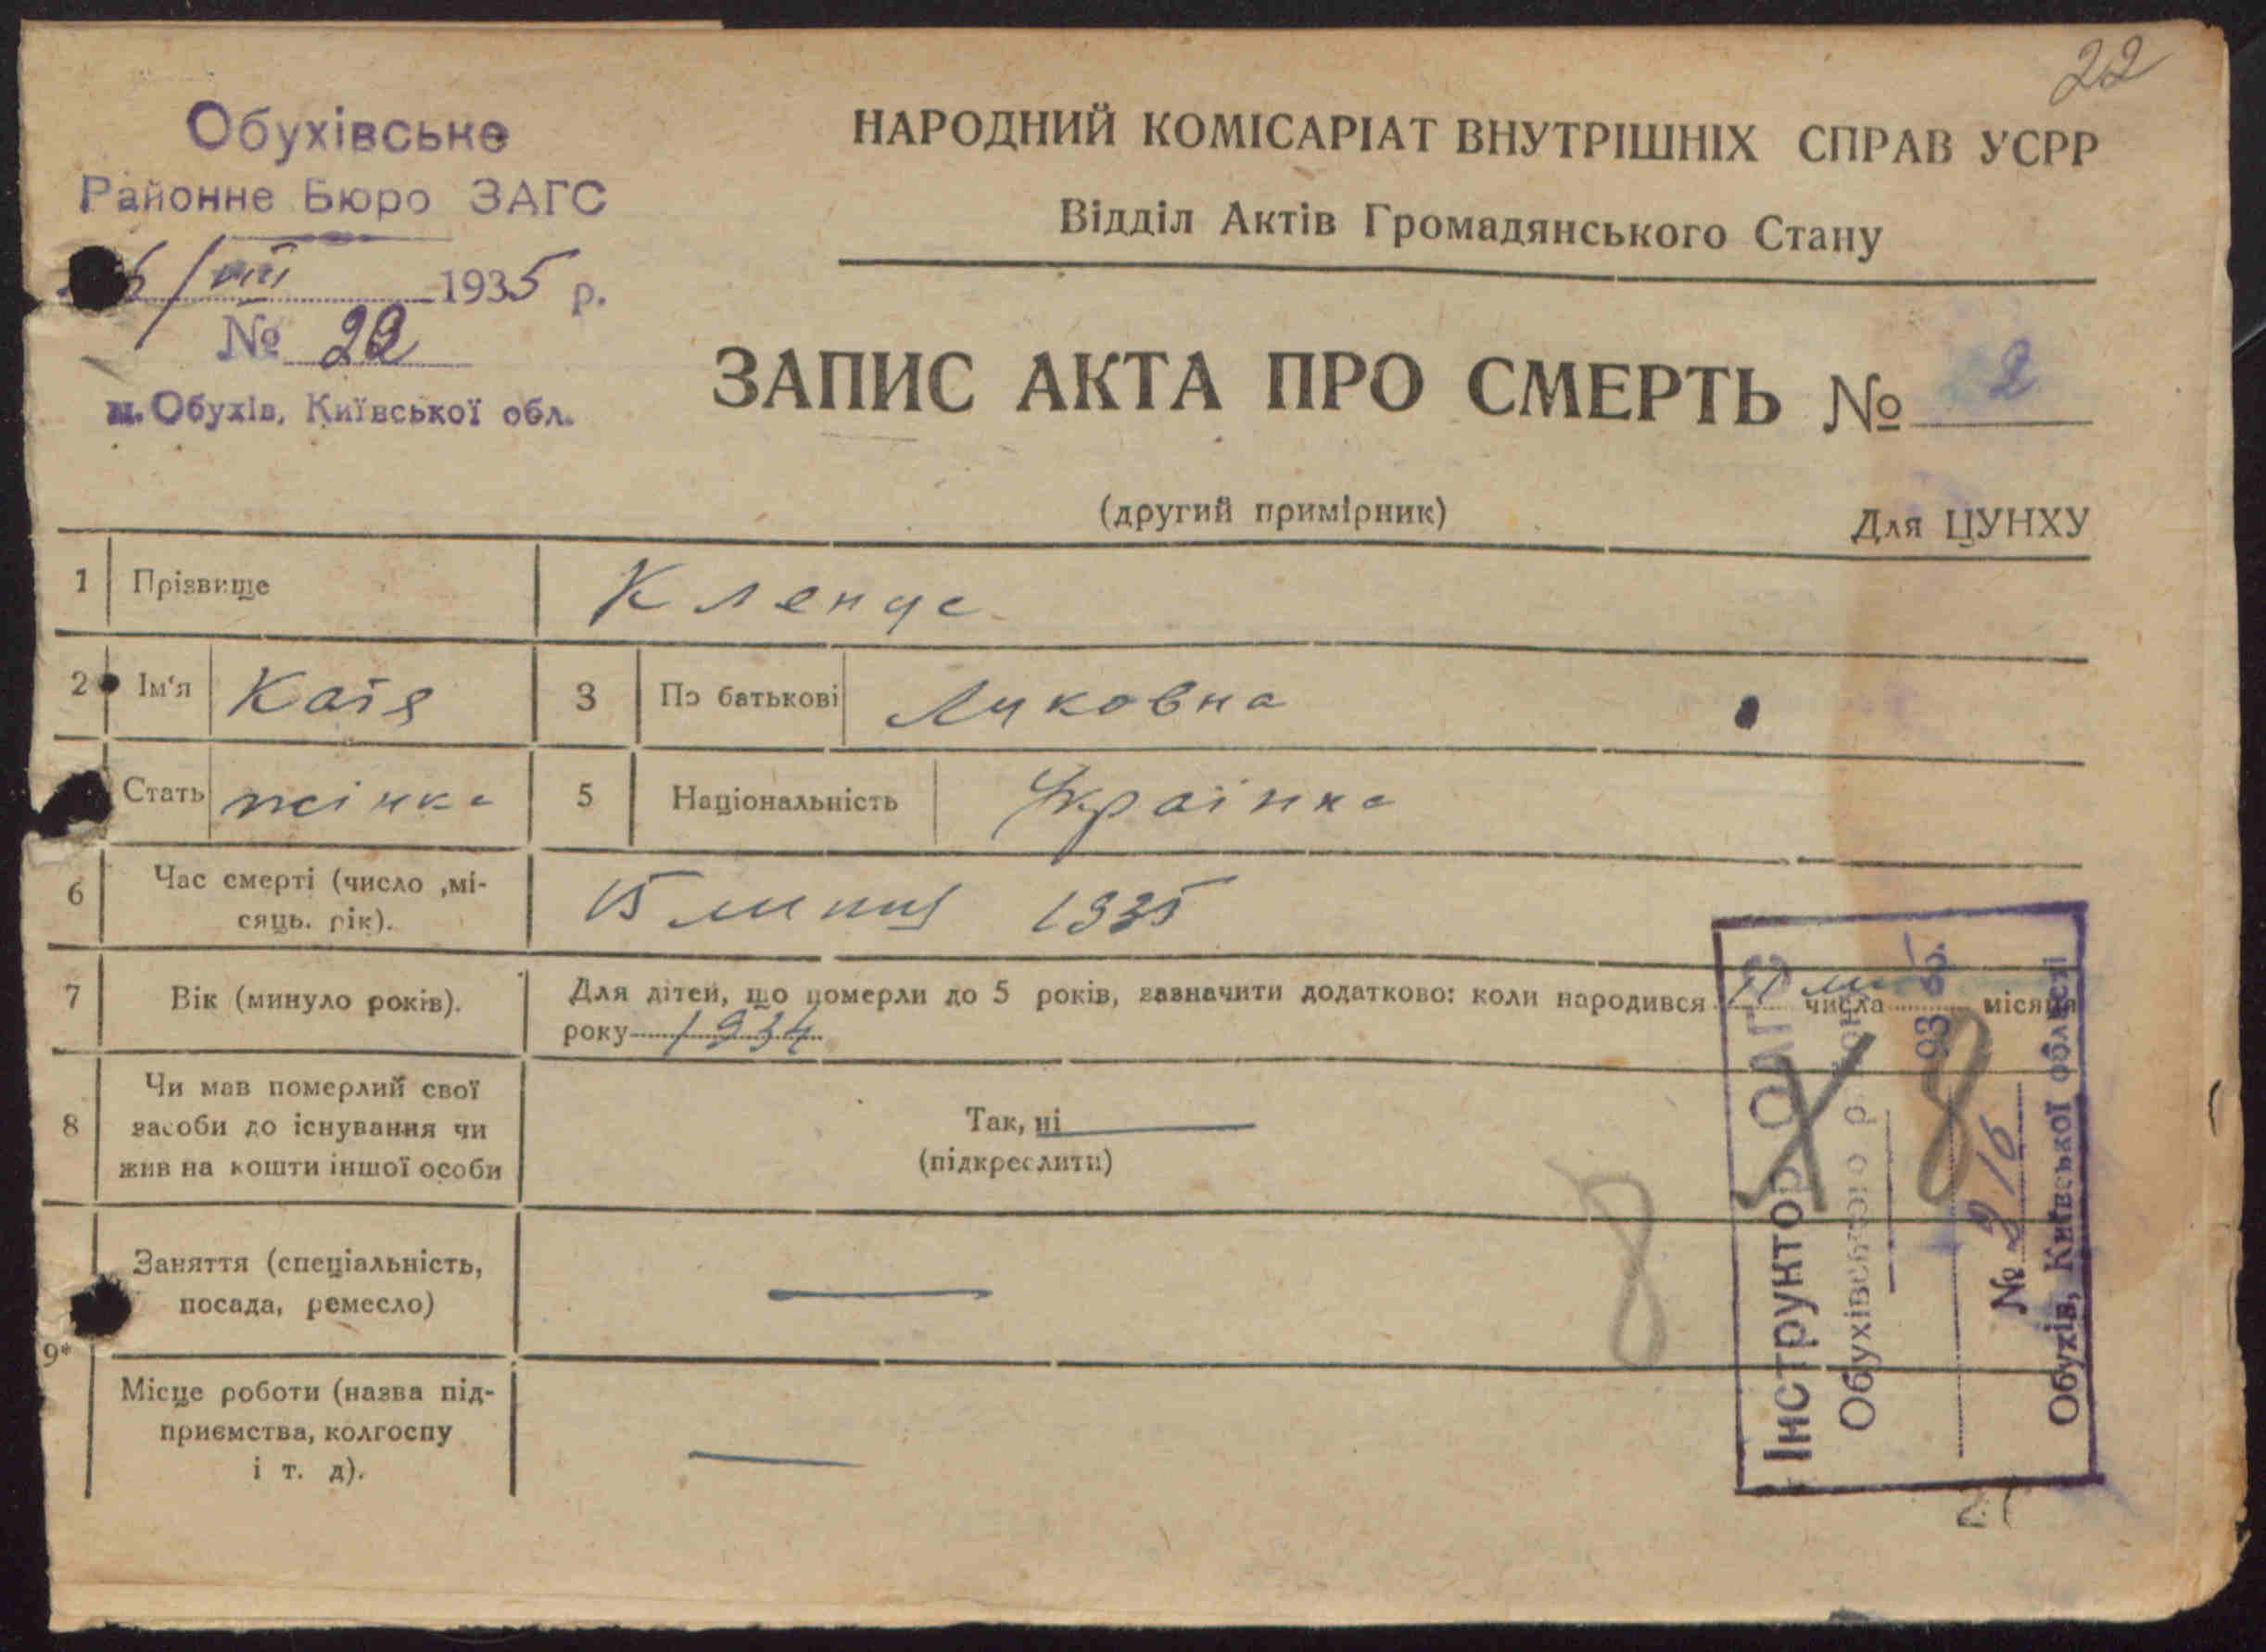 22
Обухівське
Районне Бюро ЗАГС
6/VIII 1935 р.
№ 22
м. Обухів, Київської обл.
НАРОДНИЙ КОМІСАРІАТ ВНУТРІШНІХ СПРАВ УСРР
Відділ Актів Громадянського Стану
ЗАПИС АКТА ПРО СМЕРТЬ № 2
(другий примірник)
Для ЦУНХУ
1 Прізвище
2 Ім'я Катя 3 По батькові Луковна
Стать жінка 5 Національність Українка
6 Час смерті (число ,мі-
сяць. рік). 15 липня 1935
7 Вік (минуло років). Для дітей, що померли до 5 років, зазначити додатково: коли народився числа місяця
року 1934
8 Чи мав померлий свої
засоби до існування чи
жив на кошти іншої особи
Так, ні
(підкреслити)
Заняття (спеціальність,
посада, ремесло)
9*
Місце роботи (назва під-
приємства, колгоспу
і т. д).
Інструктор ЗАГС
Обухівського району
193
№ 216
Обухів, Київської області
8
8
21